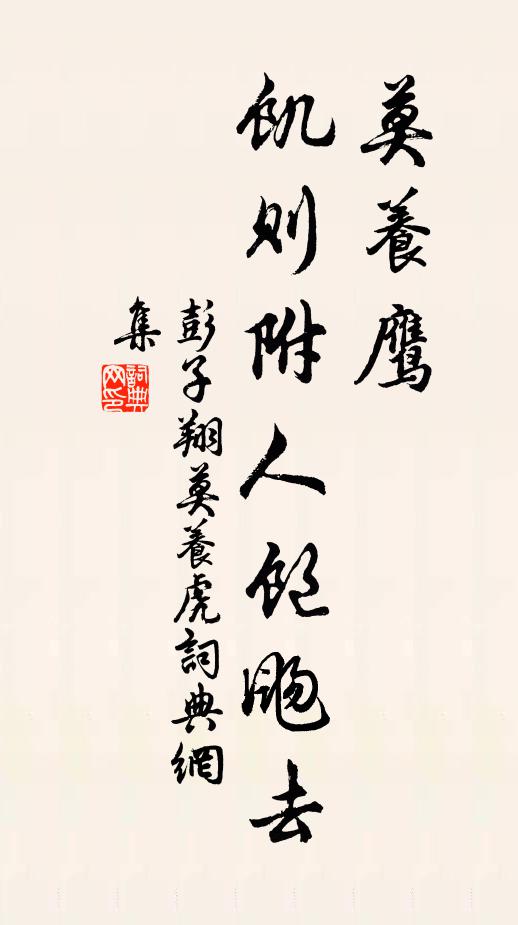 莫養鹰
飢則附人飽颺去
彭子翔莫養虎詞典網
集
詞典
网印